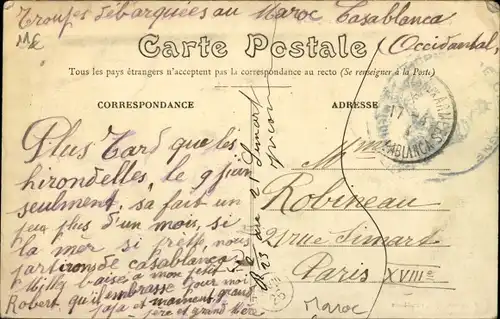 Troupes débarquées au Maroc Casablanca
Mc
Occidental,
Carte Postale
Tous les pays étrangers n'acceptent pas la correspondance au recto (Se renseigner à la Poste)
CORRESPONDANCE
ADRESSE
Plus Tard que les
hirondelles, le 9 juin
seulment, sa fait un
peu plus d'un mois, si
la mer si prette nous
partirons de casablanca
Mille baisé a mon petit
Robert qu'il embrasse pour moi
papa et maman, grand
père et grand mère
R 23 rue 21 Simart
inconnu
Mme
Robineau
21 rue Simart
Paris XVIIIe
Maroc
CASABLANCA